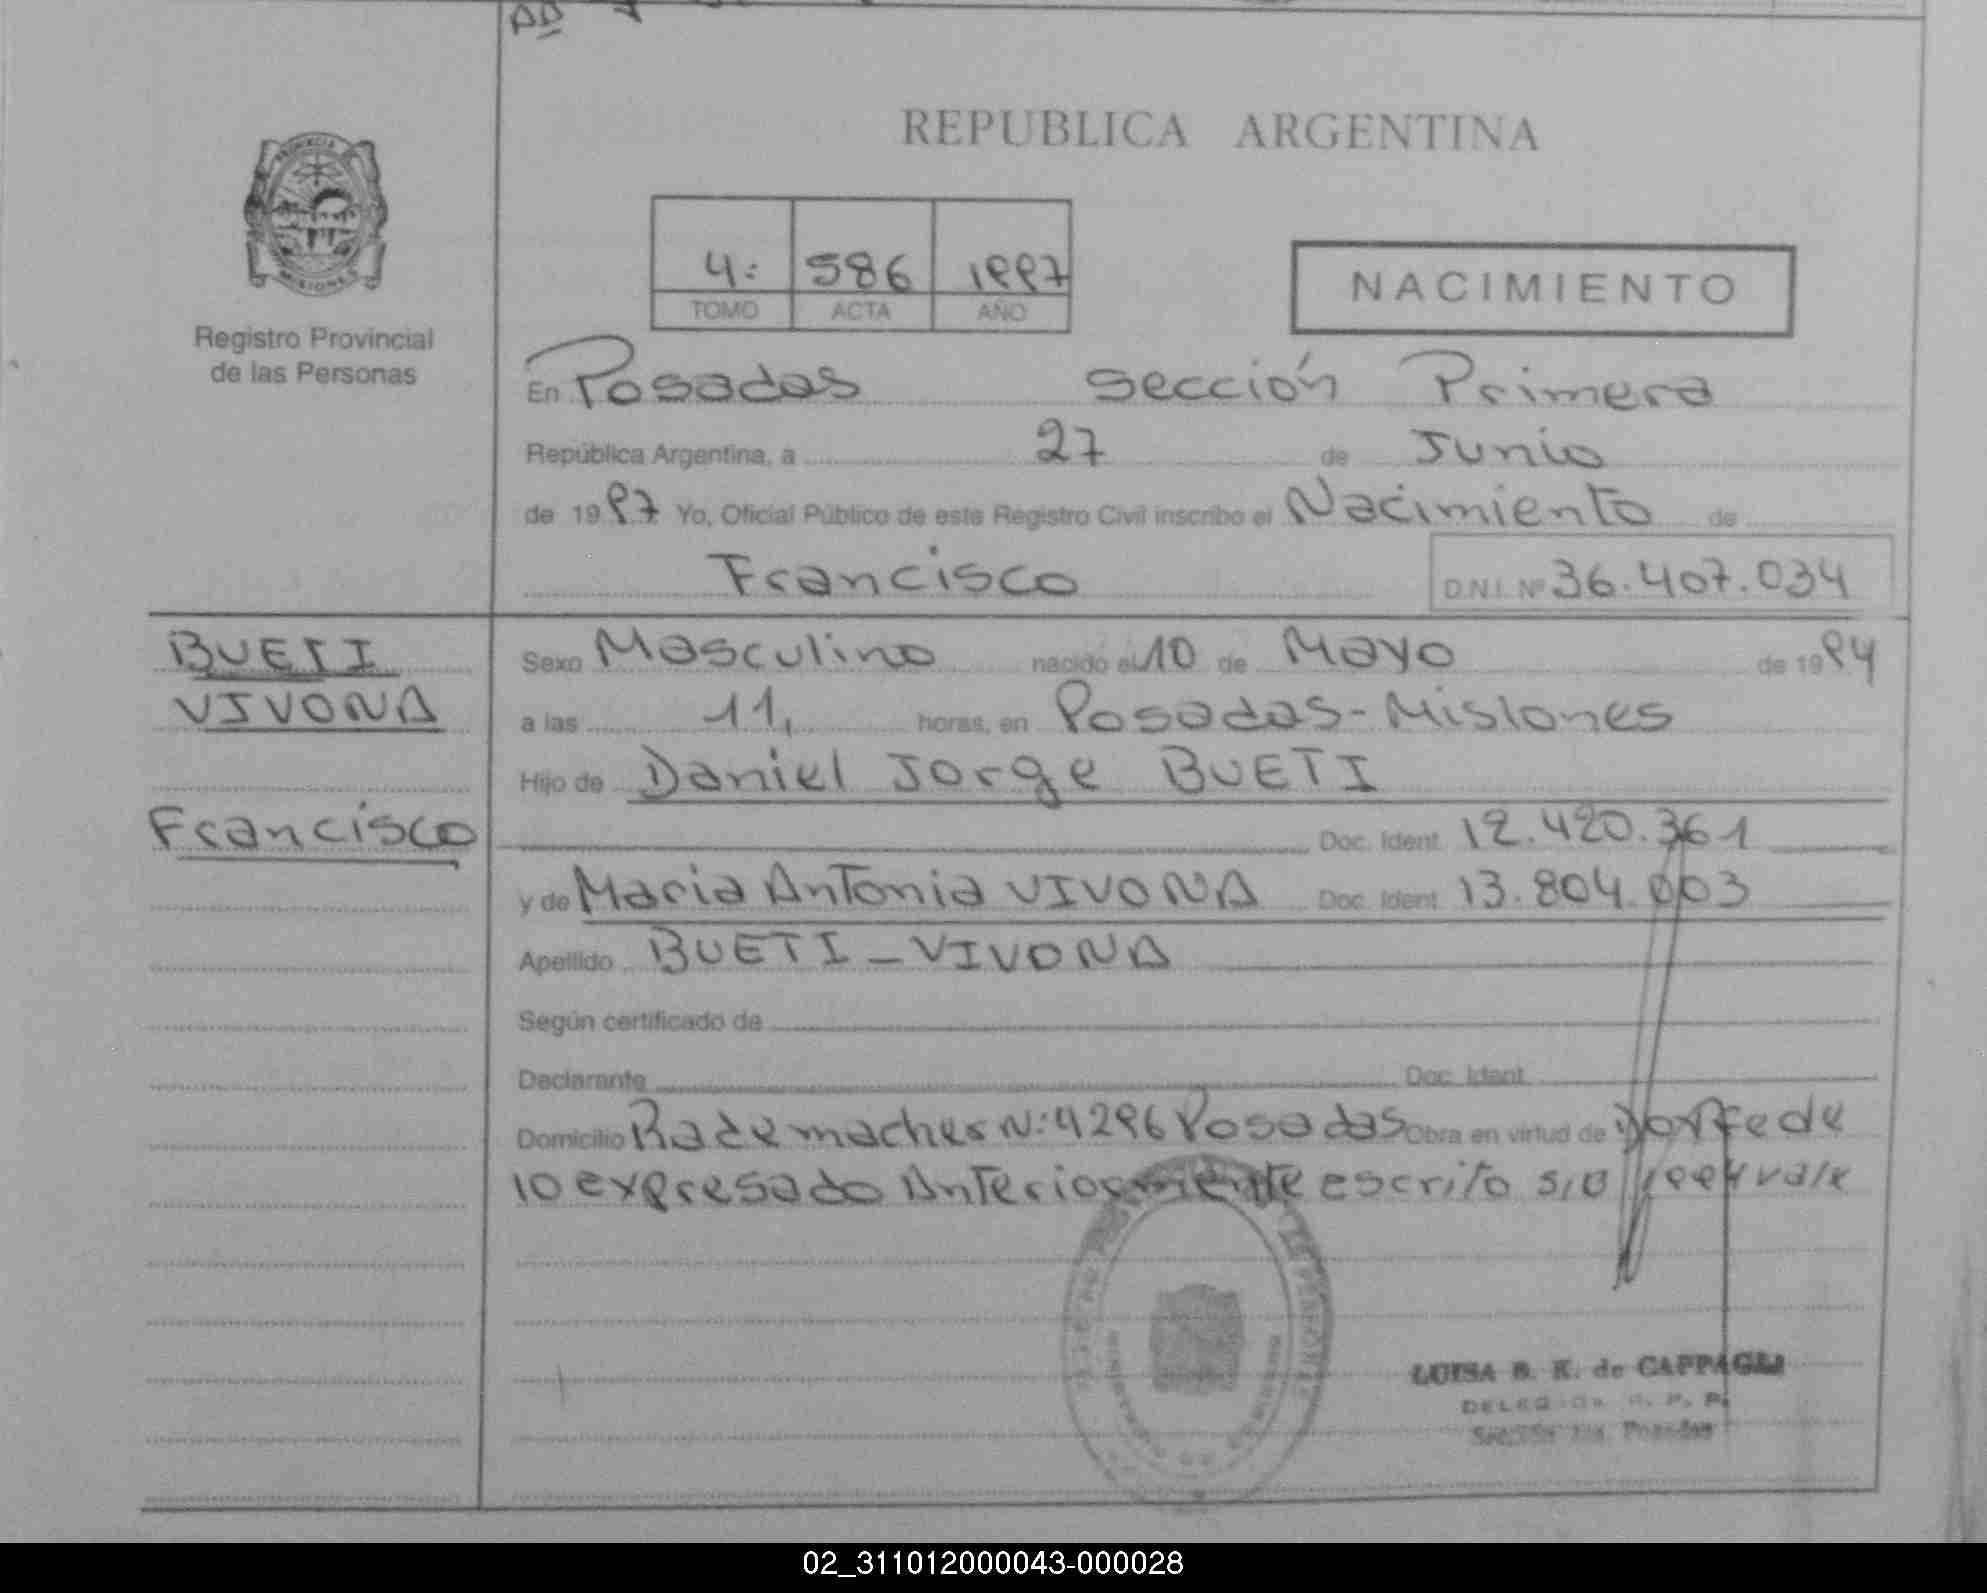 REPUBLICA ARGENTINA
PROVINCIA
MISIONES
Registro Provincial
de las Personas
4: 586 1997
TOMO ACTA AÑO
NACIMIENTO
En Posadas Sección Primera
República Argentina, a 27 de Junio
de 1997 Yo, Oficial Público de este Registro Civil inscribo el Nacimiento de
Francisco D.N.I. Nº 36.407.034
BUETI
VIVONA
Francisco
Sexo Masculino nacido el 10 de Mayo de 1994
a las 11, horas, en Posadas-Misiones
Hijo de Daniel Jorge BUETI
Doc. Ident. 12.420.361
y de Maria Antonia VIVONA Doc. Ident. 13.804.003
Apellido BUETI-VIVONA
Según certificado de
Declarante Doc. Ident.
Domicilio Rademacher N:4296 Posadas Obra en virtud de Doy fe de
lo expresado Anteriormente escrito s/o 1994 vale
LUISA B. K. de CAPPAGLI
R. P. P.
Sección 1ra. Posadas
02_311012000043-000028